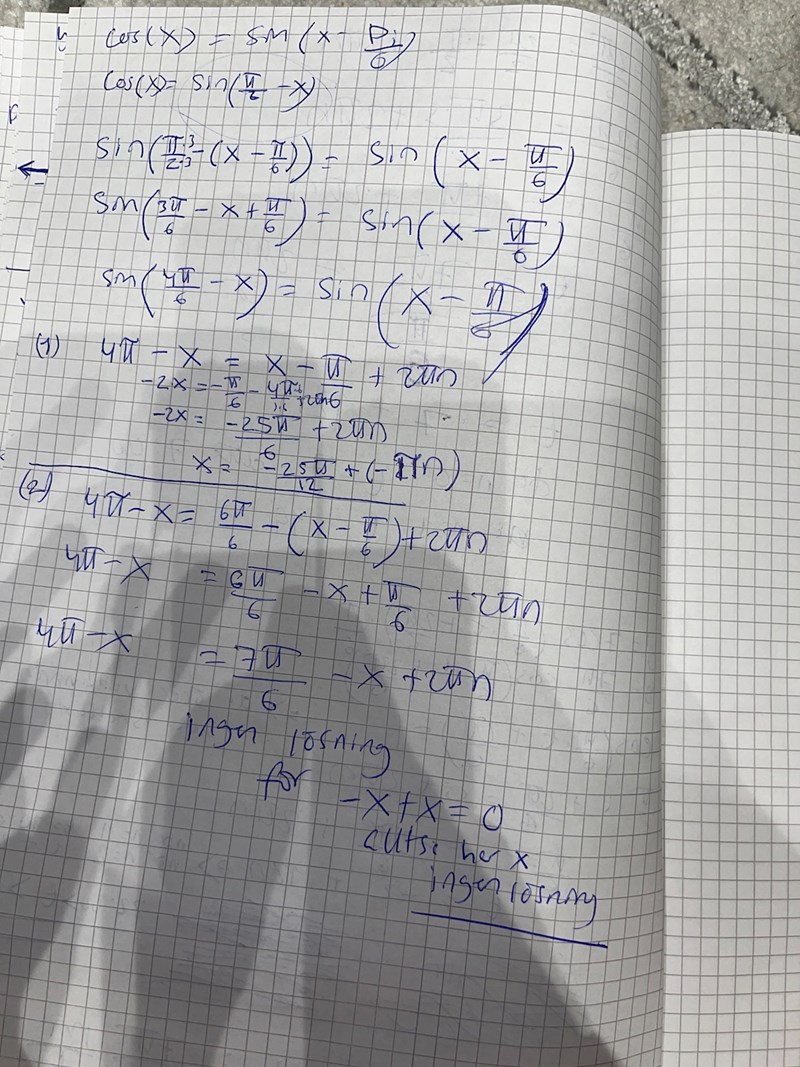 cos(x) = sin(x - Pi/6)
cos(x) = sin(π/2 - x)
sin(π·3/2·3 - (x - π/6)) = sin(x - π/6)
sin(3π/6 - x + π/6) = sin(x - π/6)
sin(4π/6 - x) = sin(x - π/6)
(1) 4π - x = x - π/6 + 2πn
-2x = -π/6 - 4π·6/1·6 + 2πn
-2x = -25π/6 + 2πn
x = -25π/12 + (-πn)
(2) 4π - x = 6π/6 - (x - π/6) + 2πn
4π - x = 6π/6 - x + π/6 + 2πn
4π - x = 7π/6 - x + 2πn
ingen lösning
för
-x + x = 0
har x
ingen lösning